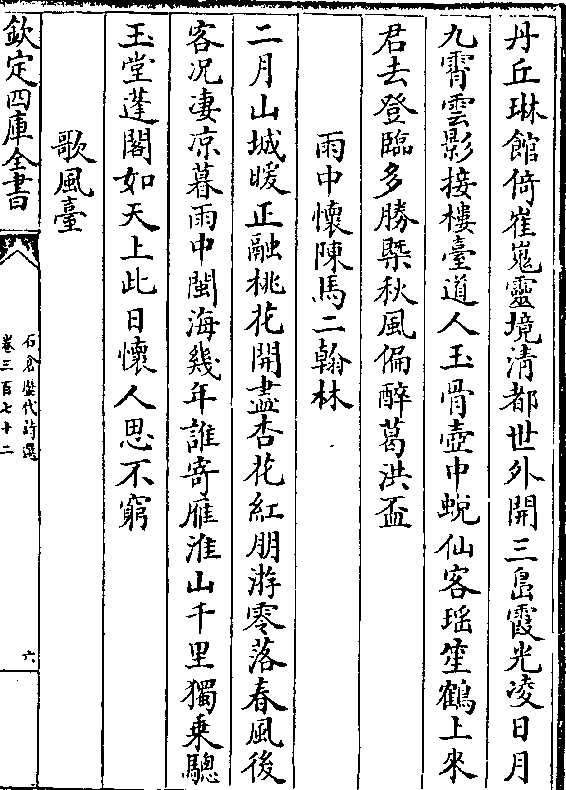 丹丘琳館倚崔嵬靈境清都世外開三島霞光凌日月
九霄雲影接樓臺道人玉骨壺中蛻仙客瑶笙鶴上來
君去登臨多勝槩秋風偏醉葛洪盃
雨中懷陳馬二翰林
二月山城暖正融桃花開盡杏花紅朋游零落春風後
客况凄凉暮雨中閩海幾年誰寄雁淮山千里獨乗驄
玉堂蓬閣如天上此日懷人思不窮
歌風臺
欽定四庫全書
石倉歴代詩選
卷三百七十二
六